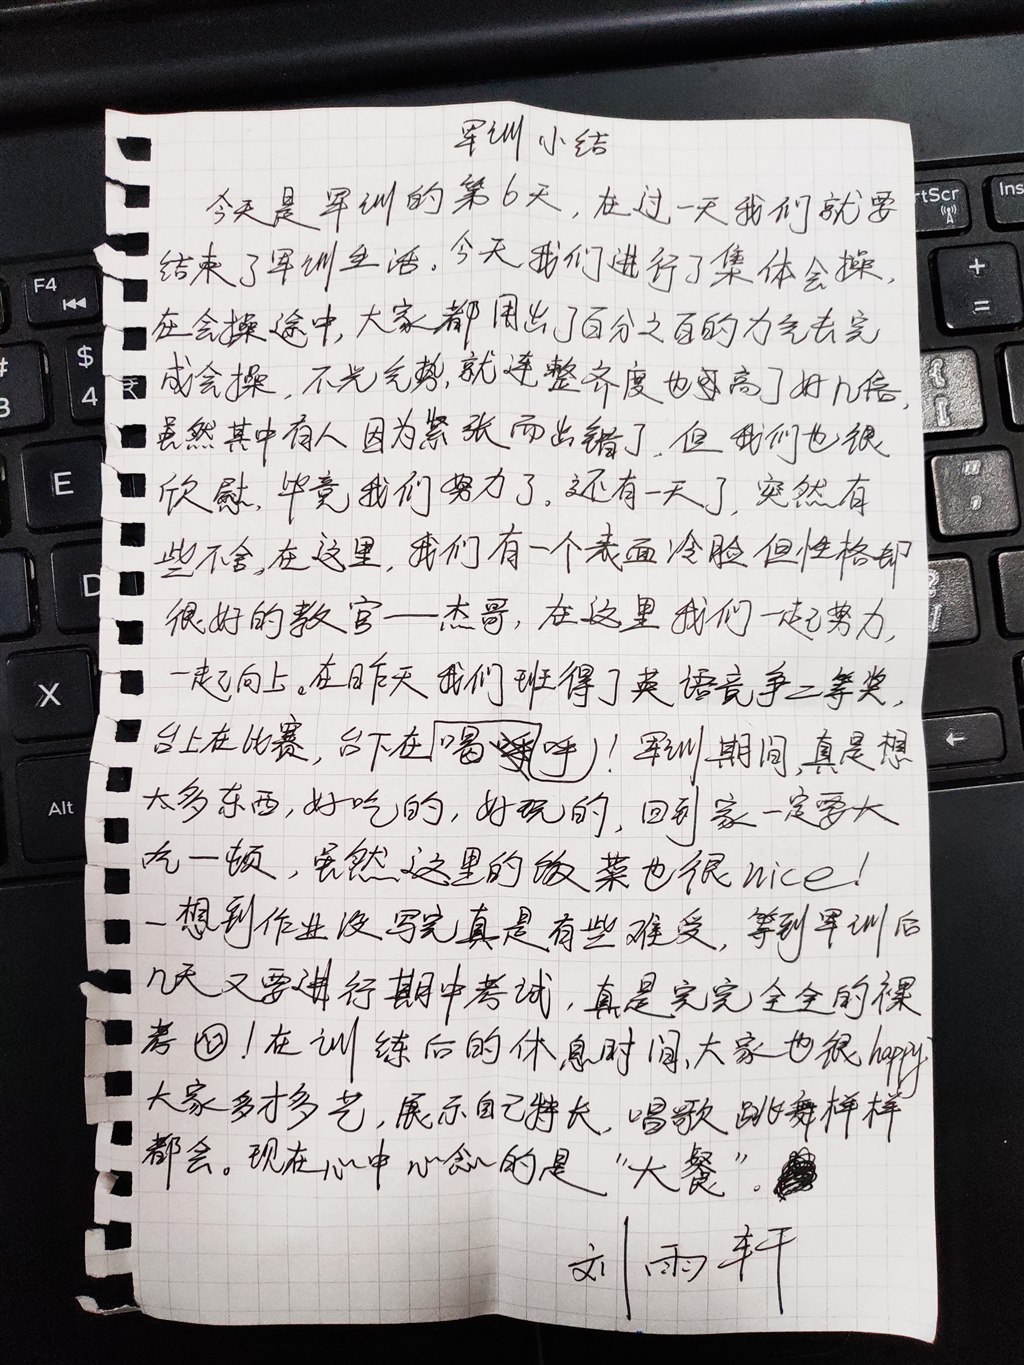 军训小结
今天是军训的第6天，在过一天我们就要
结束了军训生活。今天我们进行了集体会操，
在会操途中，大家都用出了百分之百的力气去完
成会操，不光气势，就连整齐度也高了好几倍，
虽然其中有人因为紧张而出错了，但我们也很
欣慰，毕竟我们努力了。还有一天了，突然有
些不舍，在这里，我们有一个表面冷脸但性格却
很好的教官——杰哥，在这里我们一起努力，
一起向上。在昨天我们班得了英语竞争二等奖，
台上在比赛，台下在唱呼！军训期间，真是想
太多东西，好吃的，好玩的，回到家一定要大
吃一顿，虽然这里的饭菜也很nice！
一想到作业没写完真是有些难受，等到军训后
几天又要进行期中考试，真是完完全全的裸
考！在训练后的休息时间，大家也很happy，
大家多才多艺，展示自己特长，唱歌跳舞样样
都会。现在心中心念的是“大餐”。
刘雨轩
PrtScr
Ins
F4
+
=
$
4
#
3
₹
{
[
"
'
E
D
X
Alt
←